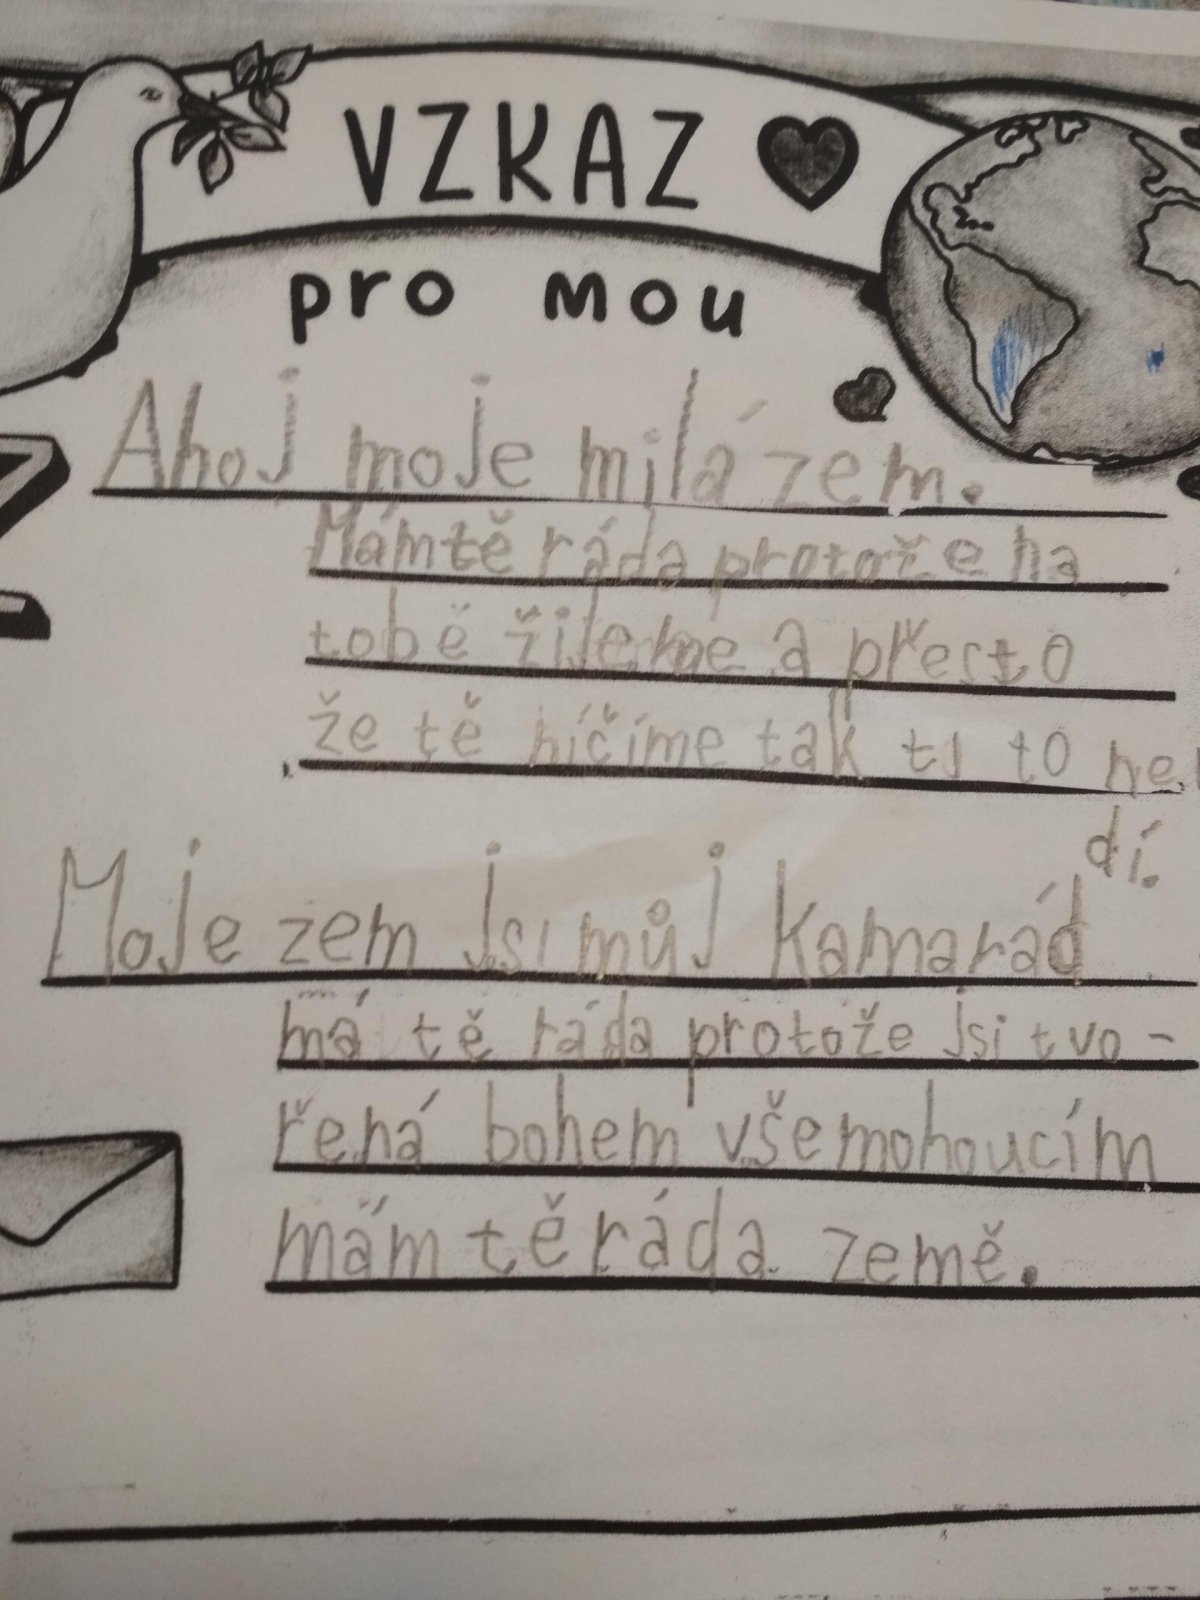 VZKAZ
pro mou
Ahoj moje milá zem.
Mám tě ráda protože na
tobě žijeme a přesto
že tě ničíme tak ti to ne
dí.
Moje zem jsi můj kamarád
má tě ráda protože jsi tvo-
řená bohem všemohoucím
mám tě ráda země.